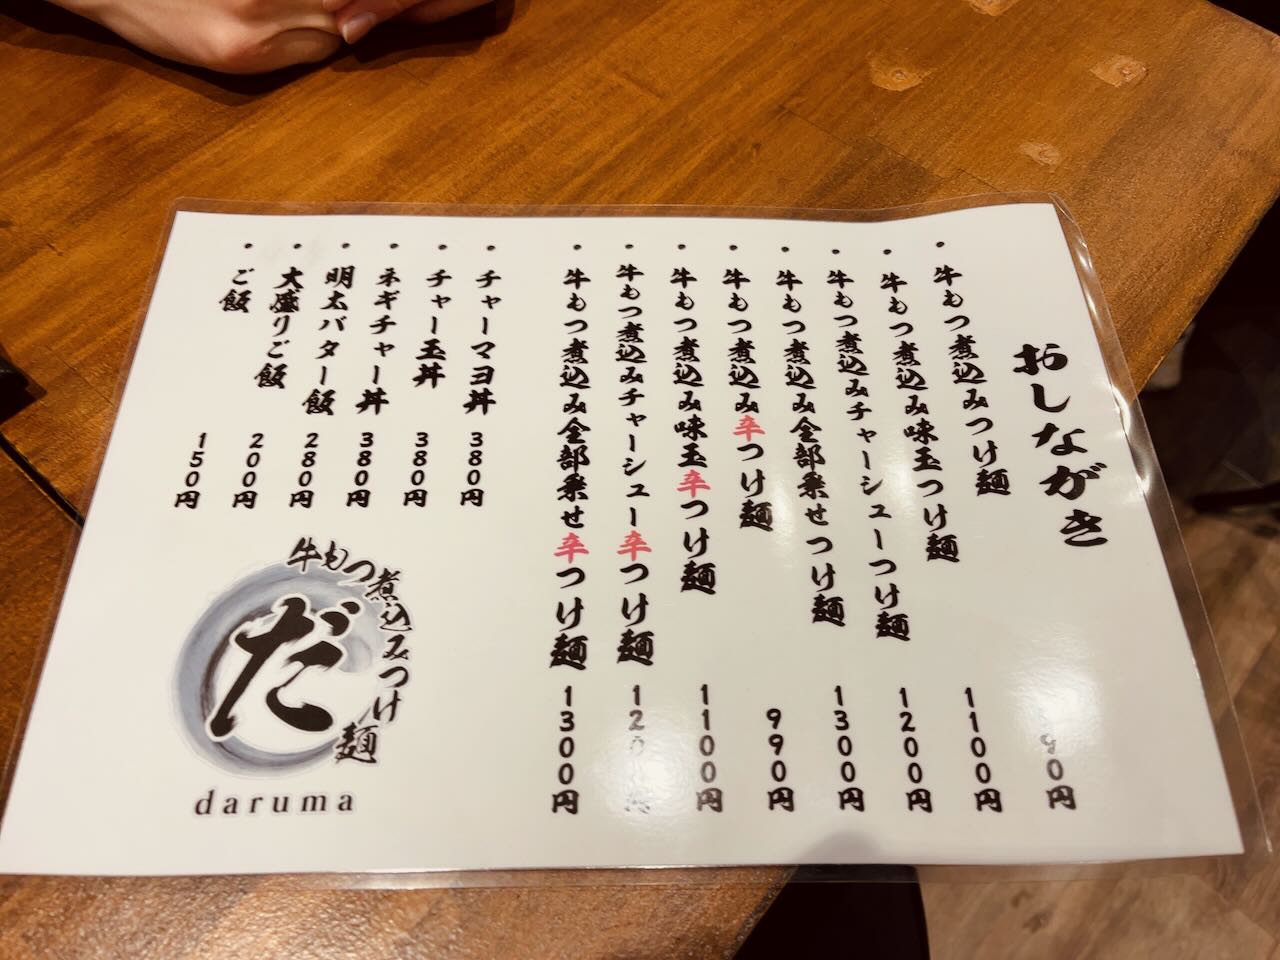 おしながき
・牛もつ煮込みつけ麺 90円
・牛もつ煮込み味玉つけ麺 1100円
・牛もつ煮込みチャーシューつけ麺 1200円
・牛もつ煮込み全部乗せつけ麺 1300円
・牛もつ煮込み辛つけ麺 990円
・牛もつ煮込み味玉辛つけ麺 1100円
・牛もつ煮込みチャーシュー辛つけ麺 1200円
・牛もつ煮込み全部乗せ辛つけ麺 1300円
・チャーマヨ丼 380円
・チャー玉丼 380円
・ネギチャー丼 380円
・明太バター飯 280円
・大盛りご飯 200円
・ご飯 150円
牛もつ煮込みつけ麺
だ
daruma